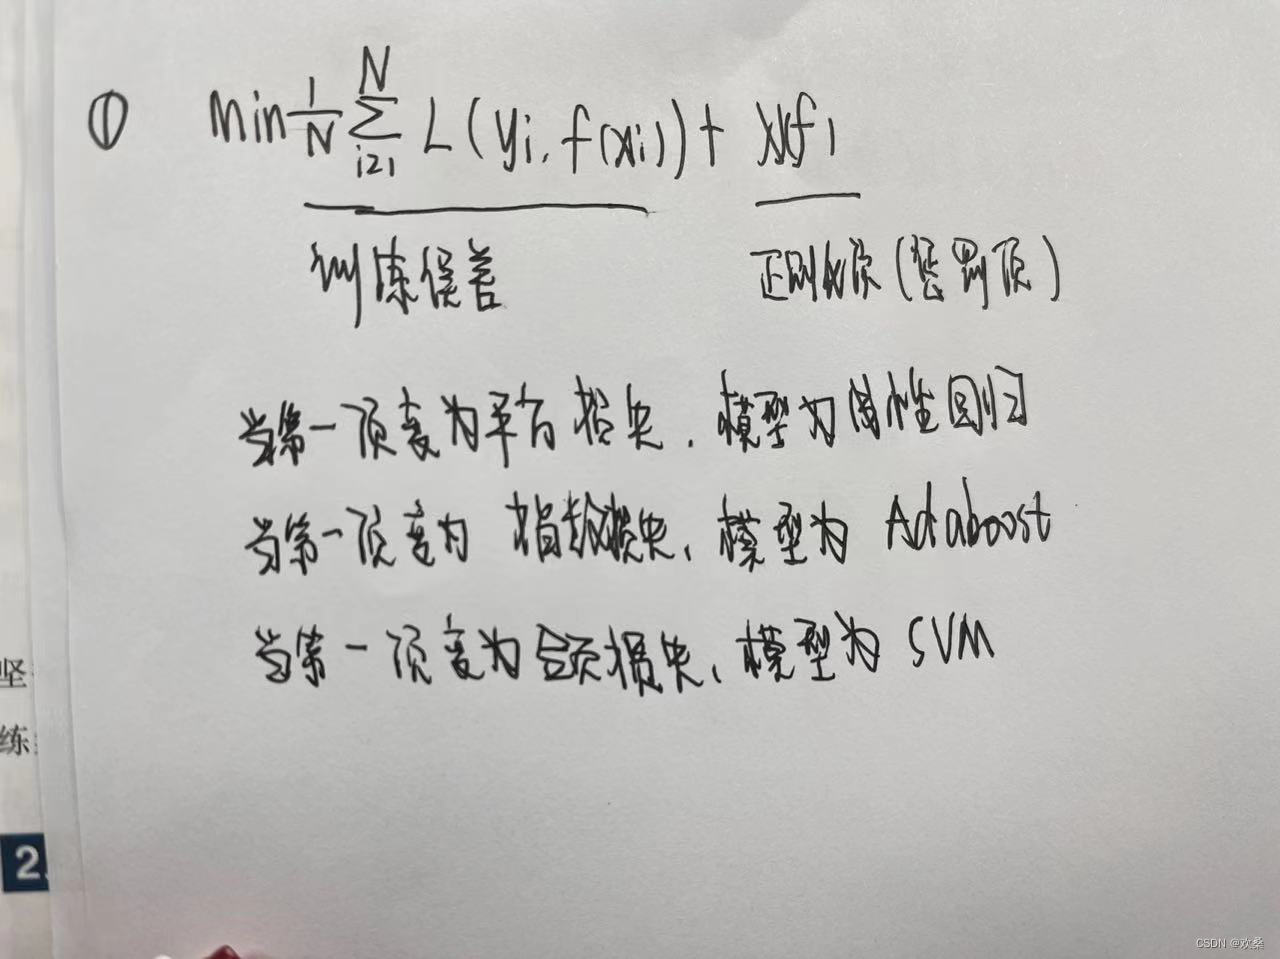 ① min 1/N N∑i=1 L(yi, f(xi)) + λJ(f)
训练误差 正则化项(惩罚项)
当第一项变为平方损失,模型为线性回归
当第一项变为 指数损失,模型为 Adaboost
当第一项变为合页损失,模型为 SVM
坚
练
2.
CSDN @欢桑